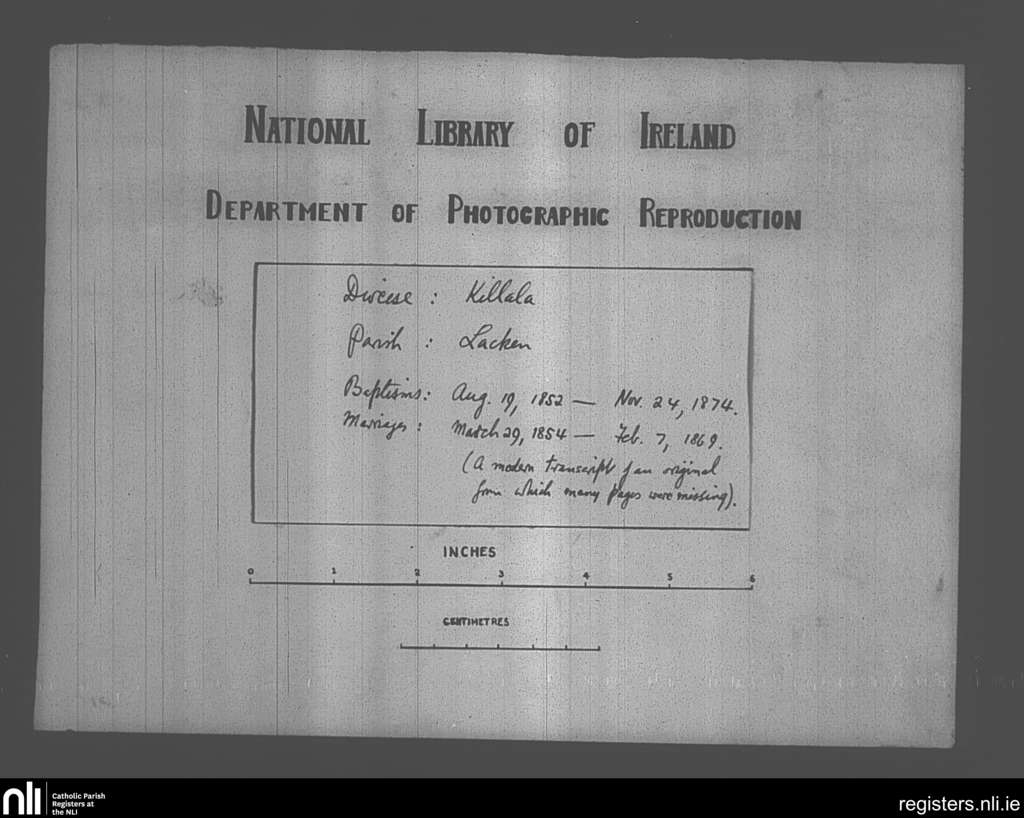 NATIONAL LIBRARY OF IRELAND
DEPARTMENT OF PHOTOGRAPHIC REPRODUCTION
Diocese : Killala
Parish : Lacken
Baptisms: Aug. 19, 1852 — Nov. 24, 1874.
Marriages : March 29, 1854 — Feb. 7, 1869.
(A modern transcript of an original
from which many pages were missing).
INCHES
0 1 2 3 4 5 6
CENTIMETRES
nli Catholic Parish
Registers at
the NLI
registers.nli.ie